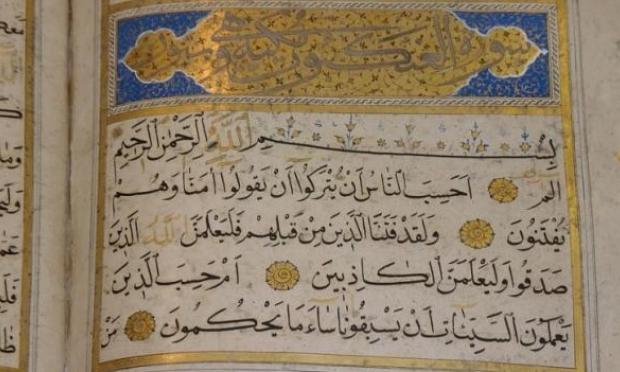 سورة العنكبوت مكية
بِسْمِ اللَّهِ الرَّحْمٰنِ الرَّحِيْمِ
الم اَحَسِبَ النَّاسُ اَنْ يُتْرَكُوا اَنْ يَقُولُوا اٰمَنَّا وَهُمْ
يُفْتَنُونَ وَلَقَدْ فَتَنَّا الَّذِينَ مِنْ قَبْلِهِمْ فَلَيَعْلَمَنَّ اللَّهُ الَّذِينَ
صَدَقُوا وَلَيَعْلَمَنَّ الْكَاذِبِينَ اَمْ حَسِبَ الَّذِينَ
يَعْمَلُونَ السَّيِّئَاتِ اَنْ يَسْبِقُونَا سَاءَ مَا يَحْكُمُونَ مَنْ